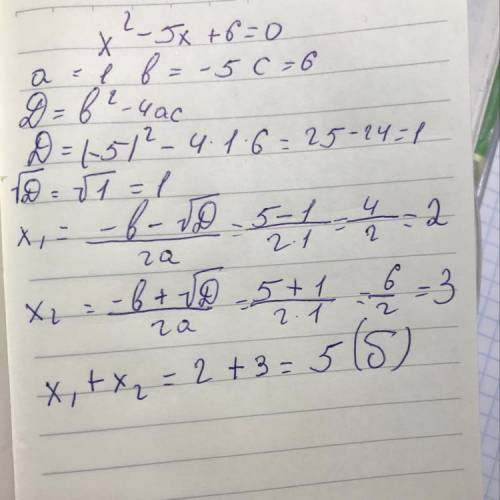 x² - 5x + 6 = 0
a = 1 в = -5 c = 6
D = в² - 4ac
D = (-5)² - 4·1·6 = 25 - 24 = 1
√D = √1 = 1
x₁ = (-в - √D)/(2a) = (5 - 1)/(2·1) = 4/2 = 2
x₂ = (-в + √D)/(2a) = (5 + 1)/(2·1) = 6/2 = 3
x₁ + x₂ = 2 + 3 = 5 (Б)